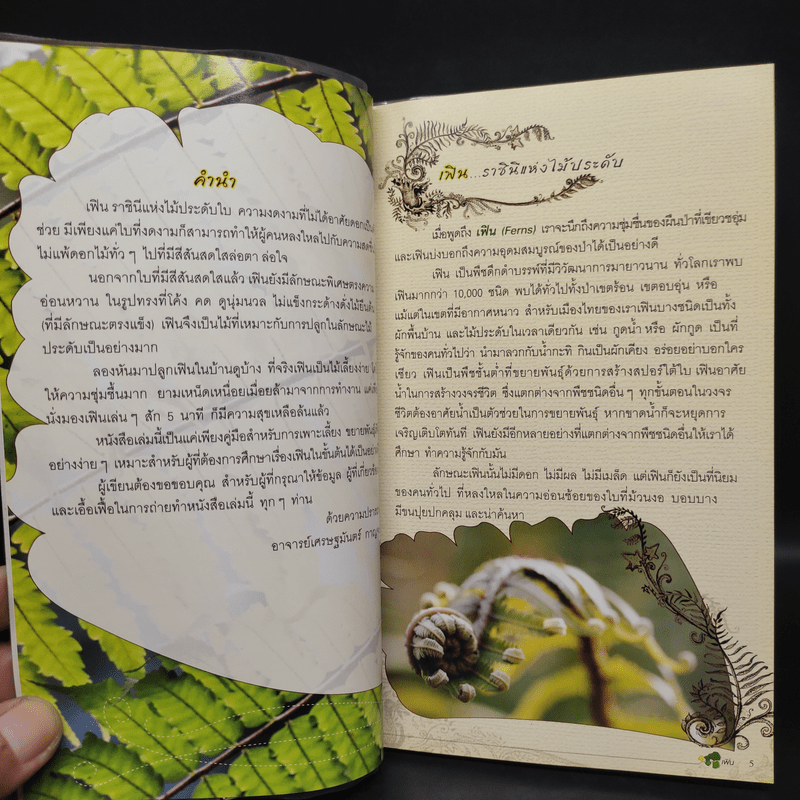 คำนำ
เฟิน ราชินีแห่งไม้ประดับใบ ความงดงามที่ไม่ได้อาศัยดอกเป็น
ช่วย มีเพียงแค่ใบที่งดงามก็สามารถทำให้ผู้คนหลงใหลไปกับความสด
ไม่แพ้ดอกไม้ทั่ว ๆ ไปที่มีสีสันสดใสล่อตา ล่อใจ
นอกจากใบที่มีสีสันสดใสแล้ว เฟินยังมีลักษณะพิเศษตรงความ
อ่อนหวาน ในรูปทรงที่โค้ง คด ดูนุ่มนวล ไม่แข็งกระด้างดั่งไม้ยืนต้น
(ที่มีลักษณะตรงแข็ง) เฟินจึงเป็นไม้ที่เหมาะกับการปลูกในลักษณะไม้
ประดับเป็นอย่างมาก
ลองหันมาปลูกเฟินในบ้านดูบ้าง ที่จริงเฟินเป็นไม้เลี้ยงง่าย
ให้ความชุ่มชื้นมาก ยามเหน็ดเหนื่อยเมื่อยล้ามาจากการทำงาน แค่
นั่งมองเฟินเล่น ๆ สัก 5 นาที ก็มีความสุขเหลือล้นแล้ว
หนังสือเล่มนี้เป็นแค่เพียงคู่มือสำหรับการเพาะเลี้ยง ขยายพันธุ์
อย่างง่าย ๆ เหมาะสำหรับผู้ที่ต้องการศึกษาเรื่องเฟินในขั้นต้นได้เป็น
ผู้เขียนต้องขอขอบคุณ สำหรับผู้ที่กรุณาให้ข้อมูล ผู้ที่เกี่ยวข้อง
และเอื้อเฟื้อในการถ่ายทำหนังสือเล่มนี้ ทุก ๆ ท่าน
ด้วยความปรารถ
อาจารย์เศรษฐมันตร์ กาญ
เฟิน...ราชินีแห่งไม้ประดับ
เมื่อพูดถึง เฟิน (Ferns) เราจะนึกถึงความชุ่มชื่นของผืนป่าที่เขียวชอุ่ม
และเฟินบ่งบอกถึงความอุดมสมบูรณ์ของป่าได้เป็นอย่างดี
เฟิน เป็นพืชดึกดำบรรพ์ที่มีวิวัฒนาการมายาวนาน ทั่วโลกเราพบ
เฟินมากกว่า 10,000 ชนิด พบได้ทั่วไปทั้งป่าเขตร้อน เขตอบอุ่น หรือ
แม้แต่ในเขตที่มีอากาศหนาว สำหรับเมืองไทยของเราเฟินบางชนิดเป็นทั้ง
ผักพื้นบ้าน และไม้ประดับในเวลาเดียวกัน เช่น กูดน้ำ หรือ ผักกูด เป็นที่
รู้จักของคนทั่วไปว่า นำมาลวกกับน้ำกะทิ กินเป็นผักเคียง อร่อยอย่าบอกใคร
เชียว เฟินเป็นพืชชั้นต่ำที่ขยายพันธุ์ด้วยการสร้างสปอร์ใต้ใบ เฟินอาศัย
น้ำในการสร้างวงจรชีวิต ซึ่งแตกต่างจากพืชชนิดอื่น ๆ ทุกขั้นตอนในวงจร
ชีวิตต้องอาศัยน้ำเป็นตัวช่วยในการขยายพันธุ์ หากขาดน้ำก็จะหยุดการ
เจริญเติบโตทันที เฟินยังมีอีกหลายอย่างที่แตกต่างจากพืชชนิดอื่นให้เราได้
ศึกษา ทำความรู้จักกับมัน
ลักษณะเฟินนั้นไม่มีดอก ไม่มีผล ไม่มีเมล็ด แต่เฟินก็ยังเป็นที่นิยม
ของคนทั่วไป ที่หลงใหลในความอ่อนช้อยของใบที่ม้วนงอ บอบบาง
มีขนปุยปกคลุม และน่าค้นหา
เฟิน 5